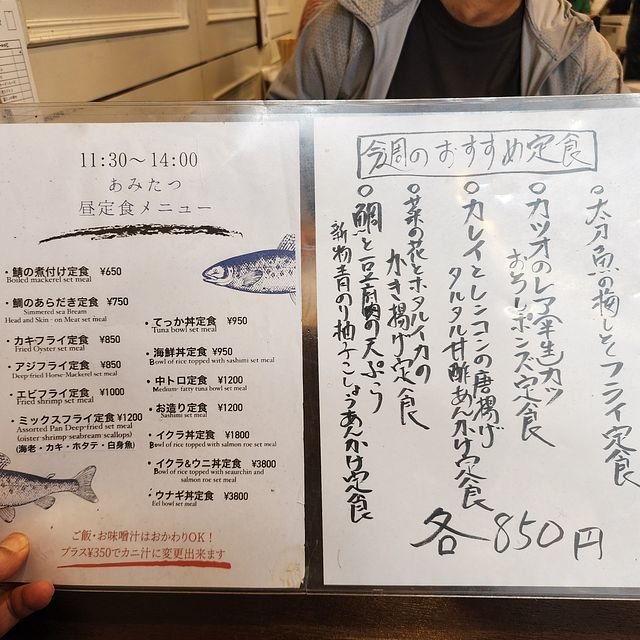 11:30〜14:00
あみたつ
昼定食メニュー
・鯖の煮付け定食 ¥650
Boiled mackerel set meal
・鯛のあらだき定食 ¥750
Simmered sea Bream
Head and Skin - on Meat set meal
・カキフライ定食 ¥850
Fried Oyster set meal
・アジフライ定食 ¥850
Deep-fried Horse-Mackerel set meal
・エビフライ定食 ¥1000
Fried shrimp set meal
・ミックスフライ定食 ¥1200
Assorted Pan Deep-fried set meal
(oister·shrimp·seabream·scallops)
(海老・カキ・ホタテ・白身魚)
・てっか丼定食 ¥950
Tuna bowl set meal
・海鮮丼定食 ¥950
Bowl of rice topped with sashimi set meal
・中トロ定食 ¥1200
Medium- fatty tuna bowl set meal
・お造り定食 ¥1200
Sashimi set meal
・イクラ丼定食 ¥1800
Bowl of rice topped with salmon roe set meal
・イクラ&ウニ丼定食 ¥3800
Bowl of rice topped with seaurchin and
salmon roe set meal
・ウナギ丼定食 ¥3800
Eel bowl set meal
ご飯・お味噌汁はおかわりOK！
プラス¥350でカニ汁に変更出来ます
今週のおすすめ定食
○太刀魚の梅しそフライ定食
○カツオのレア(半生)カツ
おろしポンズ定食
○カレイとレンコンの唐揚げ
タルタル甘酢あんかけ定食
○菜の花とホタルイカの
かき揚げ定食
○鯛と豆腐の天ぷら
新物青のり柚子こしょうあんかけ定食
各850円